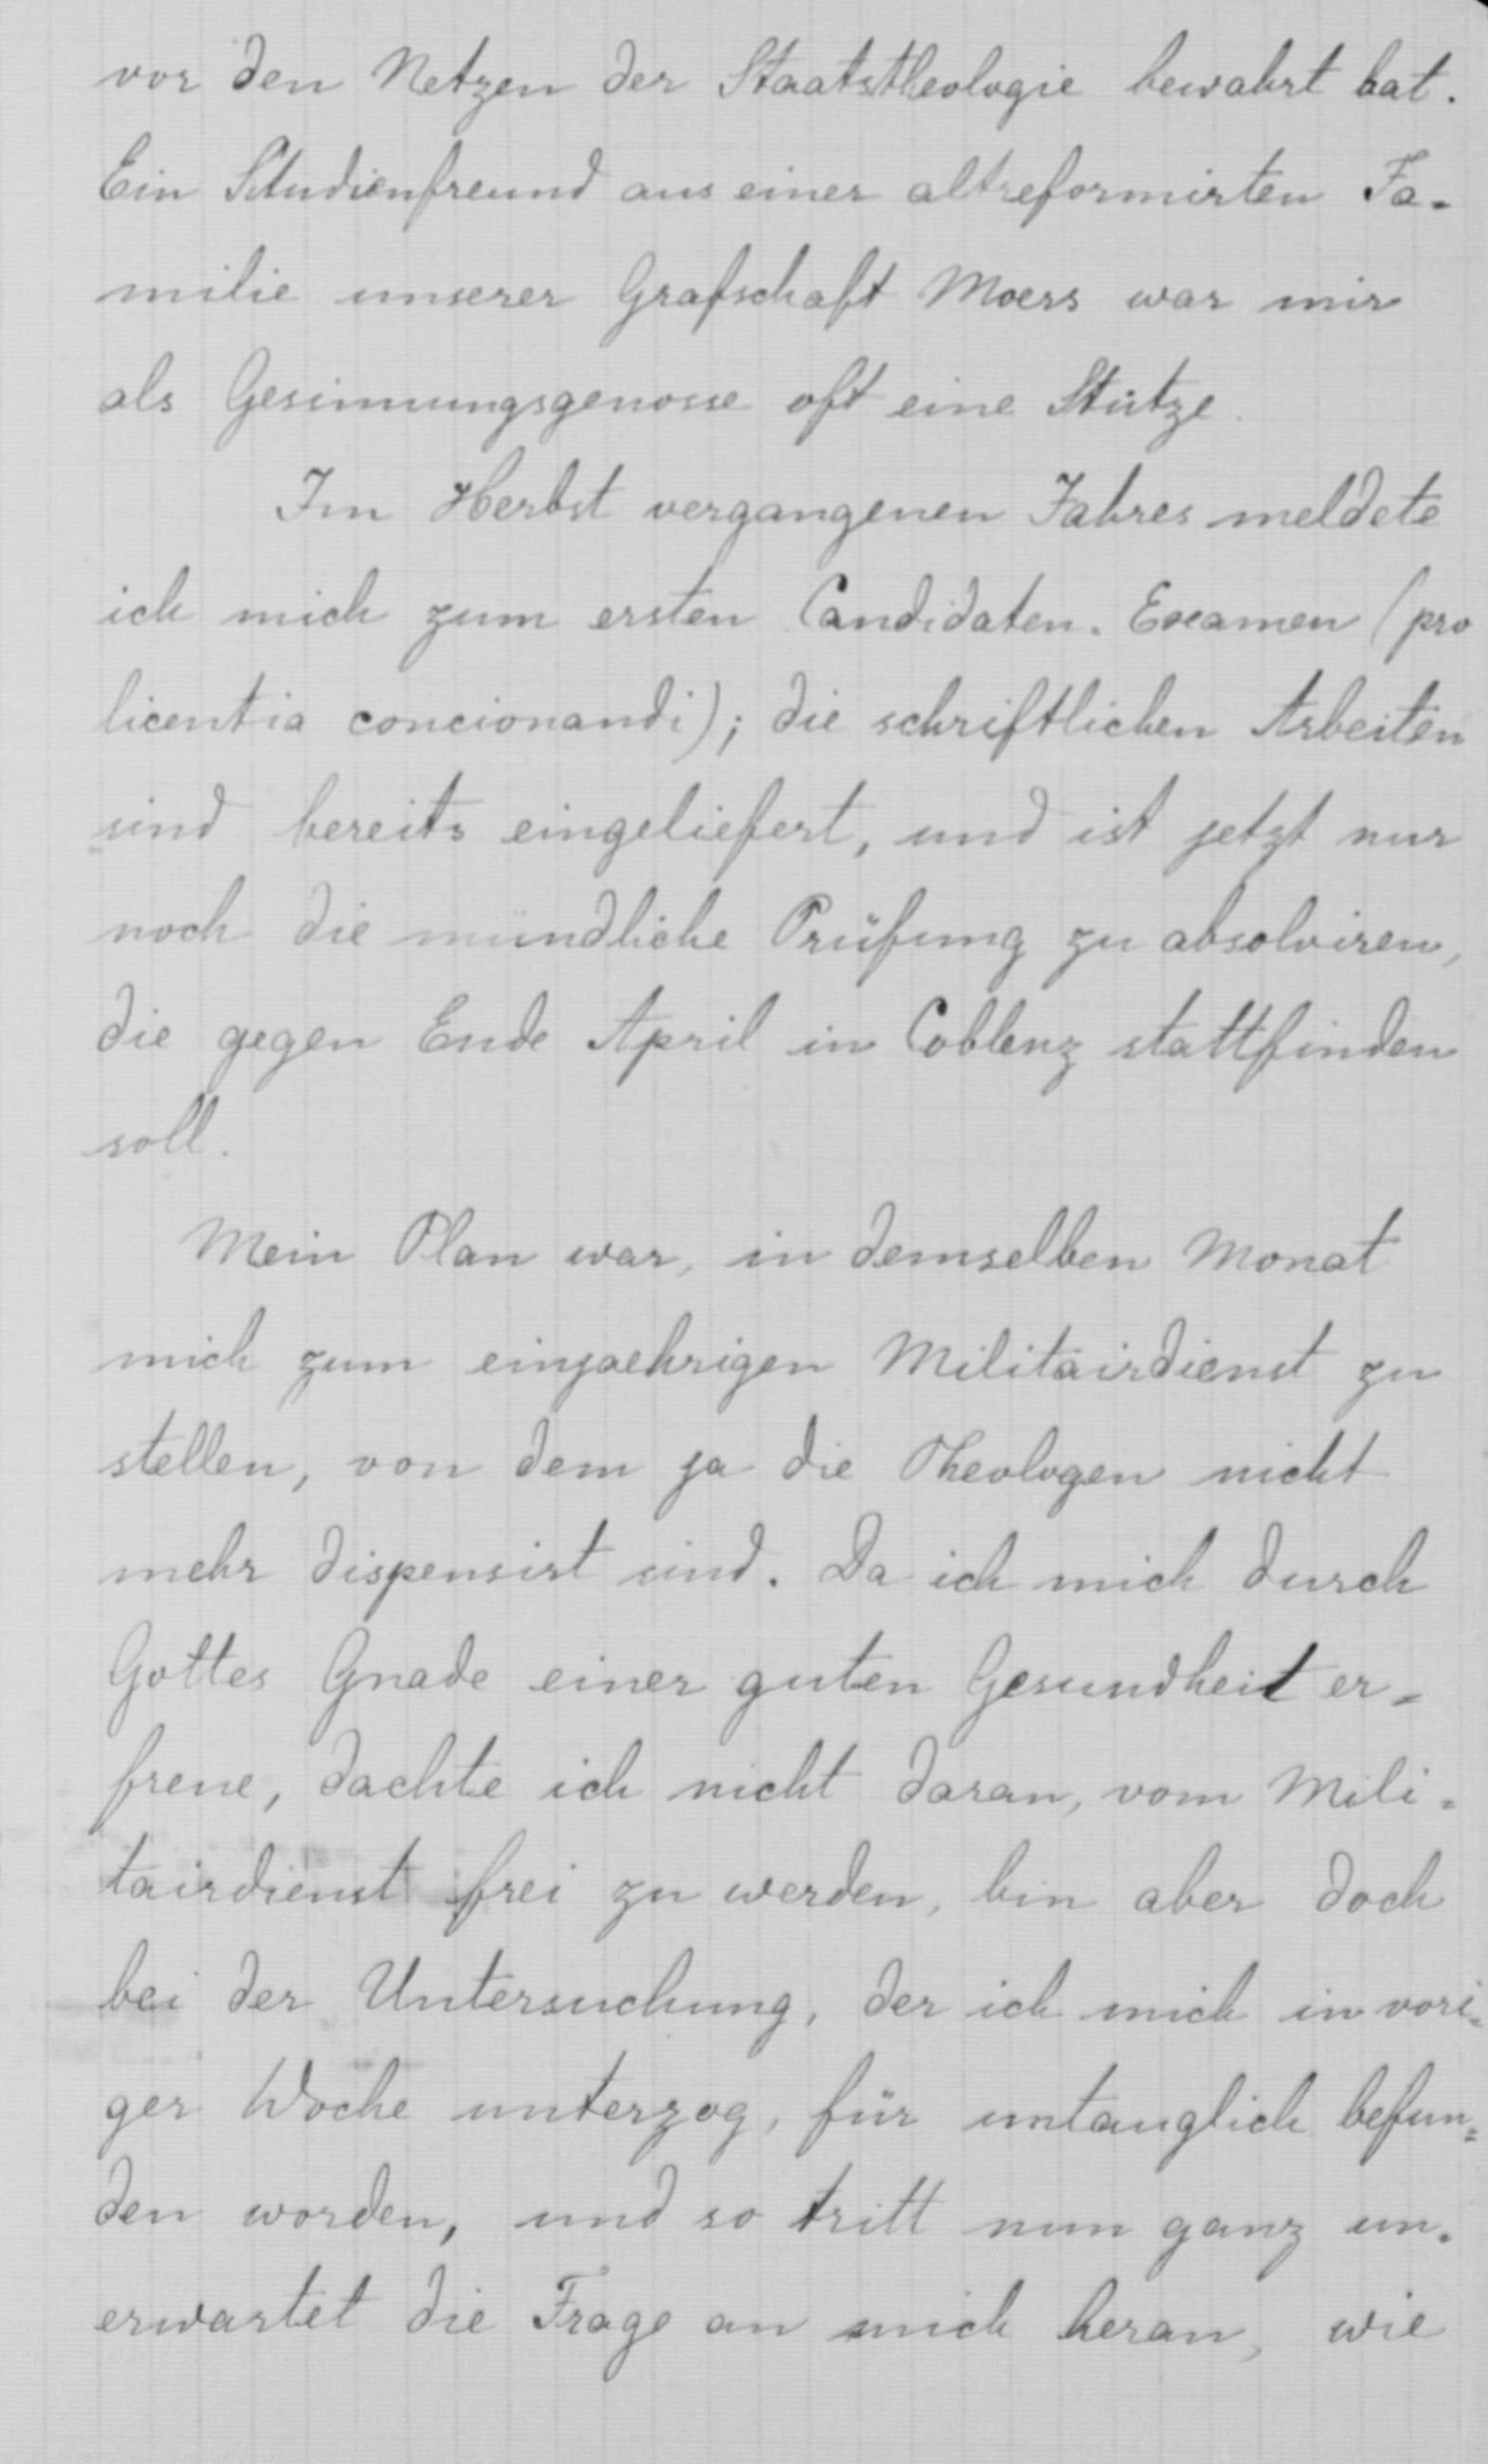 vor den Netzen der Staatstheologie bewahrt hat.
Ein Studienfreund aus einer altreformirten Fa-
milie unserer Grafschaft Moers war mir
als Gesinnungsgenosse oft eine Stütze.
Im Herbst vergangenen Jahres meldete
ich mich zum ersten Candidaten-Examen (pro
licentia concionandi); die schriftlichen Arbeiten
sind bereits eingeliefert, und ist jetzt nur
noch die mündliche Prüfung zu absolviren,
die gegen Ende April in Coblenz stattfinden
soll.
Mein Plan war, in demselben Monat
mich zum einjaehrigen Militairdienst zu
stellen, von dem ja die Theologen nicht
mehr dispensirt sind. Da ich mich durch
Gottes Gnade einer guten Gesundheit er=
freue, dachte ich nicht daran, vom Mili=
tairdienst frei zu werden, bin aber doch
bei der Untersuchung, der ich mich in vori=
ger Woche unterzog, für untauglich befun=
den worden, und so tritt nun ganz un-
erwartet die Frage an mich heran, wie